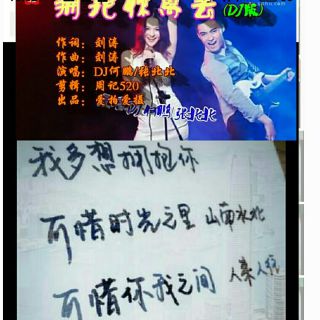 拥抱你离去(DJ版)
作词：刘涛
作曲：刘涛
演唱：DJ何鹏/张北北
剪辑：周记520
出品：爱拍爱摄
我多想拥抱你
可惜时光之里 山南水北
可惜你我之间 人来人往